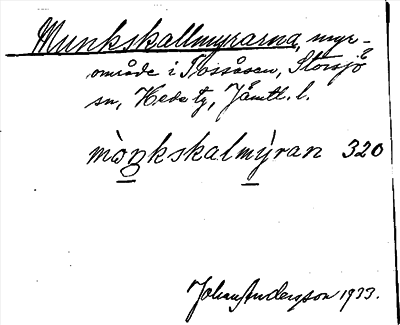 Munkskallmyrarna, myr-
område i Flossåsen, Storsjö
sn, Hede tg, Jämtl. l.
mònkskalmỳran 320
Johan Andersson 1933.